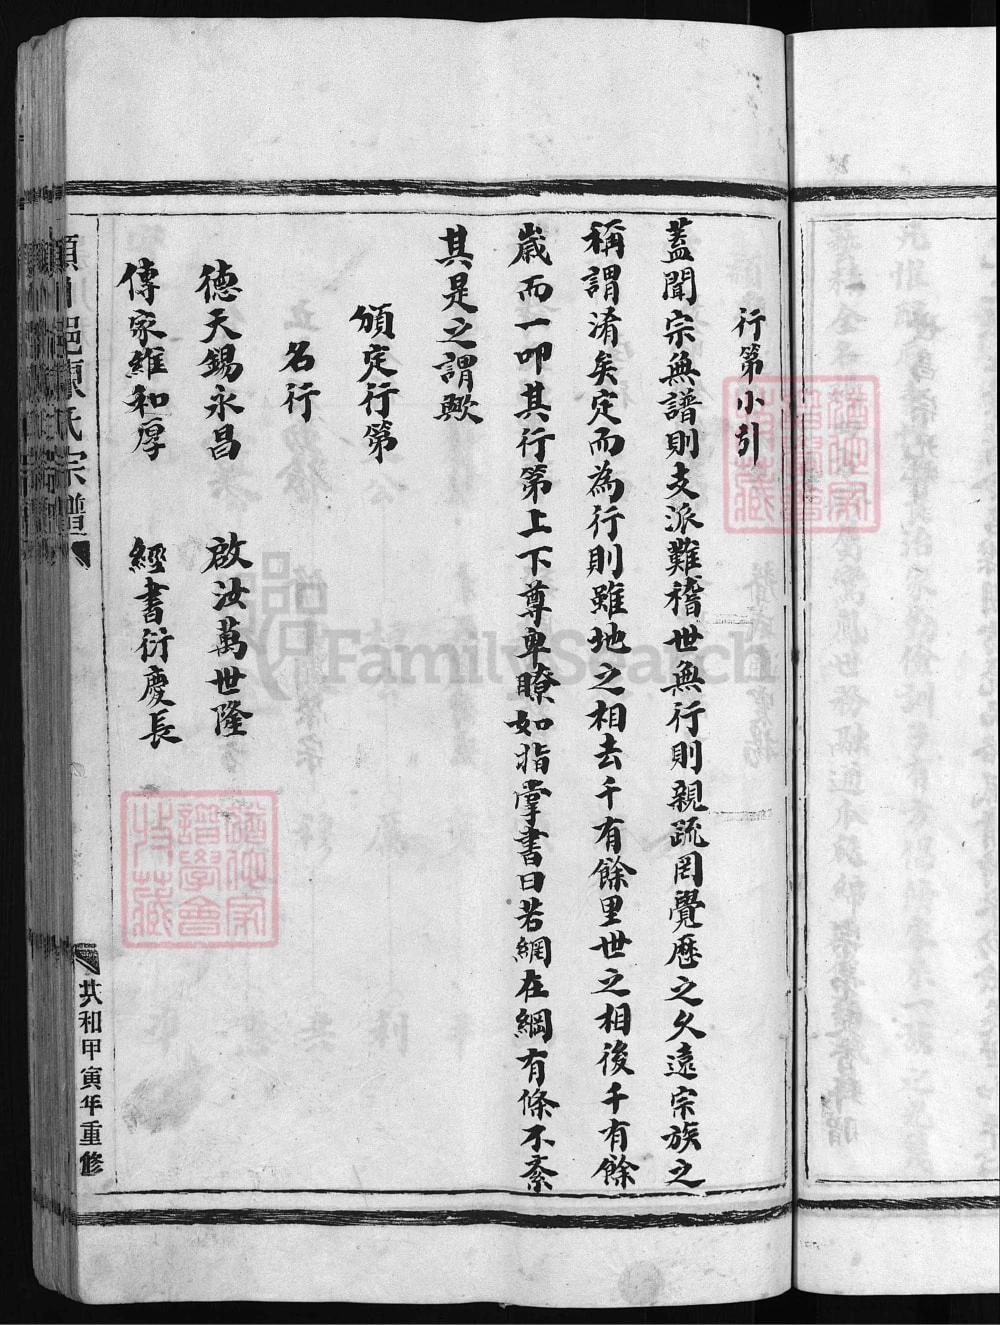 行第小引
蓋聞宗無譜則支派難稽世無行則親疏罔覺歷之久遠宗族之
稱謂淆矣定而為行則雖地之相去千有餘里世之相後千有餘
歲而一叩其行第上下尊卑瞭如指掌書曰若網在綱有條不紊
其是之謂歟
頒定行第
名行
德天錫永昌 啟汝萬世隆
傳家維和厚 經書衍慶長
氏宗譜
共和甲寅年重修
FamilySearch